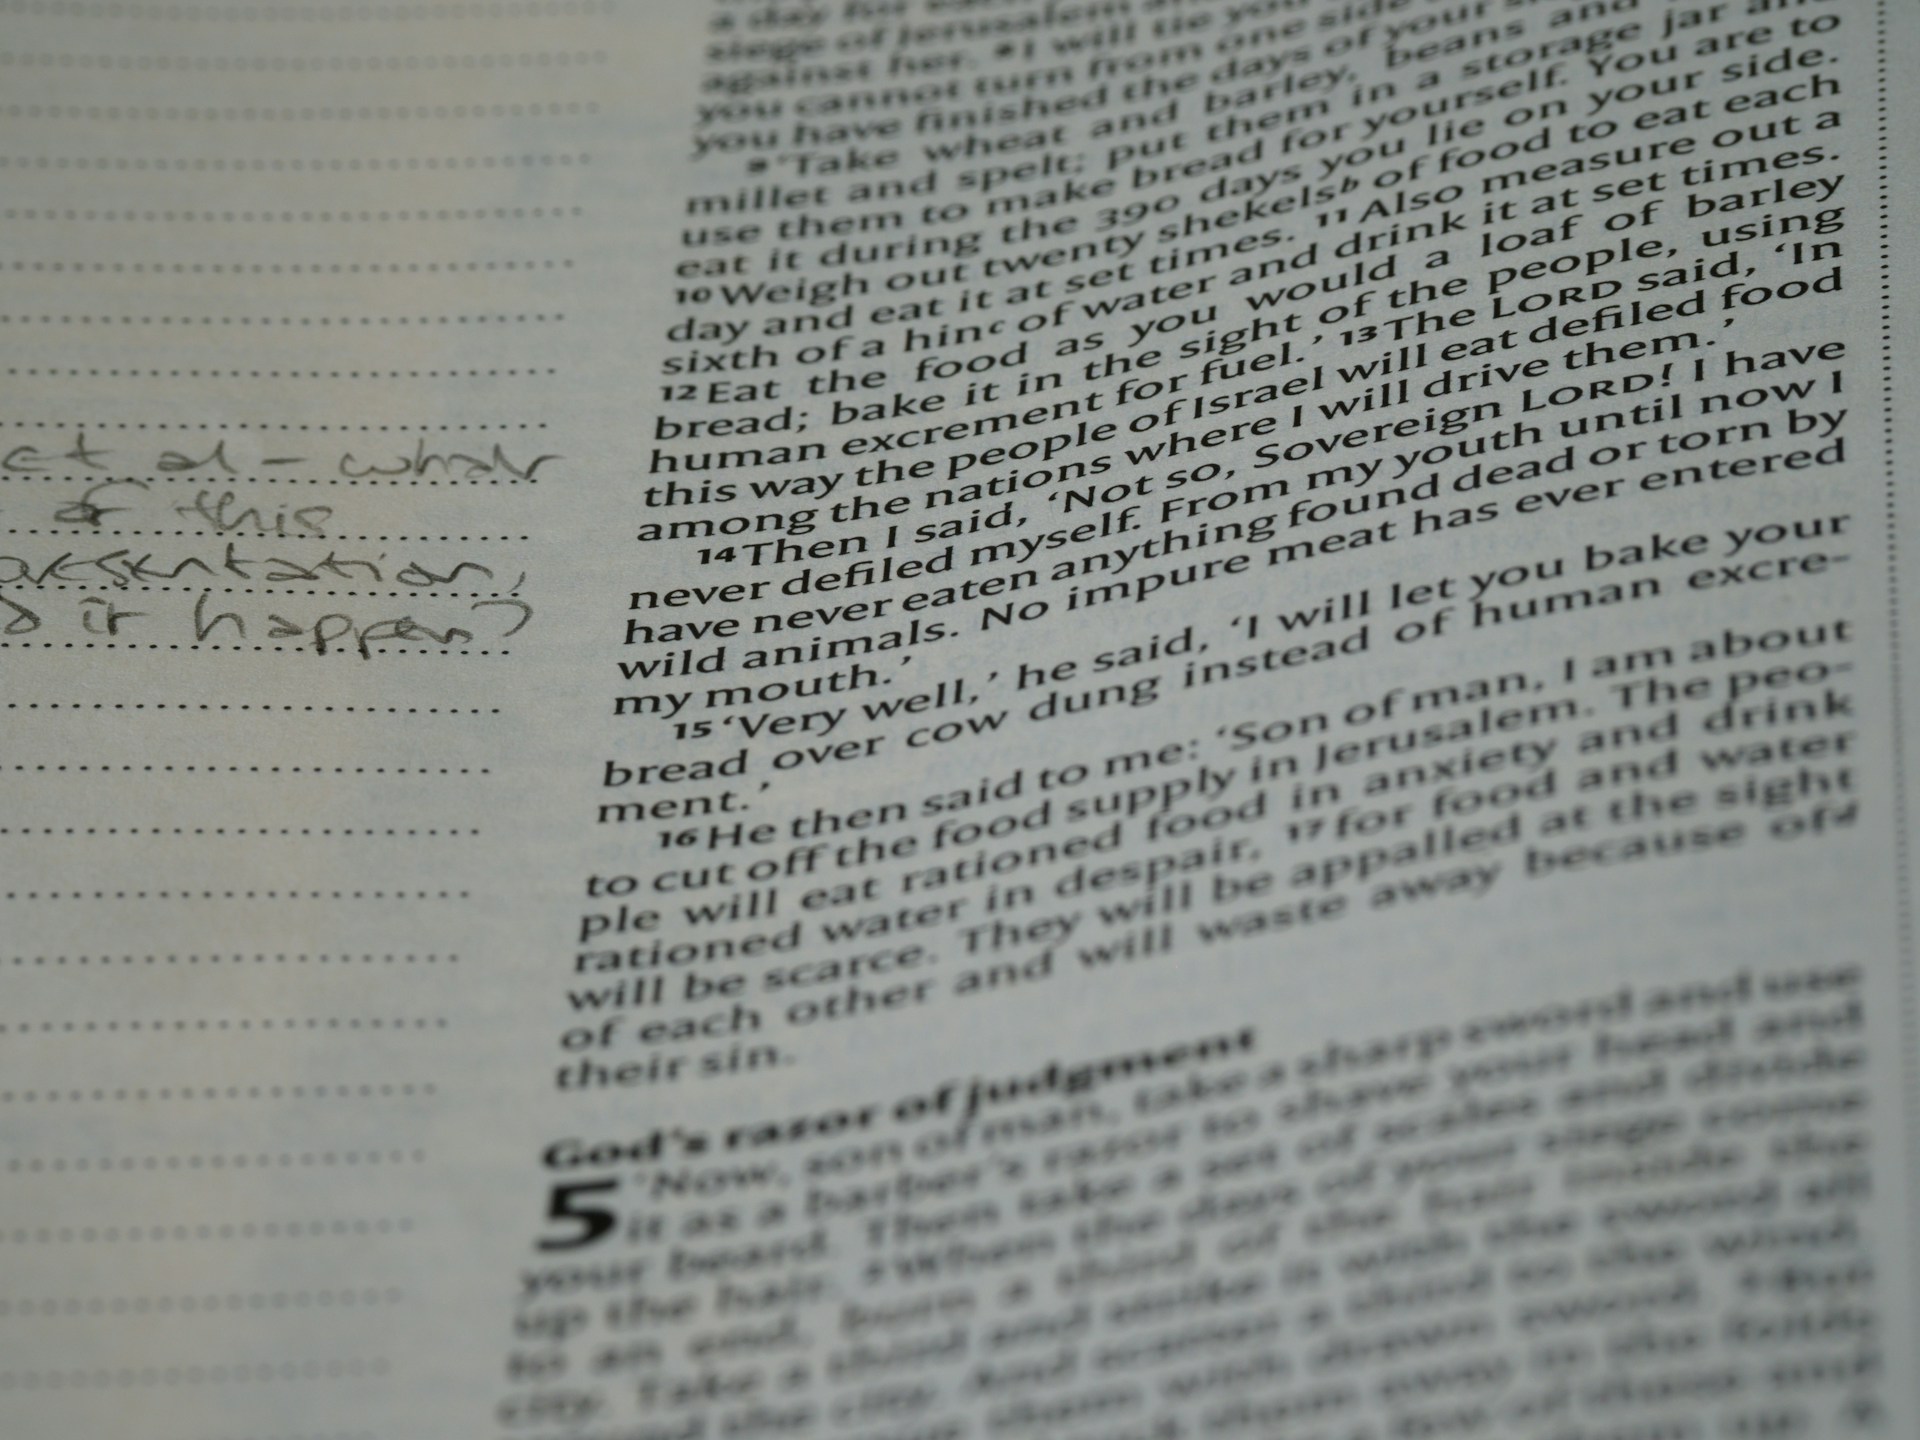 of this
it happen?
a day for each
siege of Jerusalem
against her. 8 I will tie you
you cannot turn from one side
you have finished the days of your
9 ‘Take wheat and barley, beans and
millet and spelt; put them in a storage jar and
use them to make bread for yourself. You are to
eat it during the 390 days you lie on your side.
10 Weigh out twenty shekelsb of food to eat each
day and eat it at set times. 11 Also measure out a
sixth of a hinc of water and drink it at set times.
12 Eat the food as you would a loaf of barley
bread; bake it in the sight of the people, using
human excrement for fuel.’ 13 The LORD said, ‘In
this way the people of Israel will eat defiled food
among the nations where I will drive them.’
14 Then I said, ‘Not so, Sovereign LORD! I have
never defiled myself. From my youth until now I
have never eaten anything found dead or torn by
wild animals. No impure meat has ever entered
my mouth.’
15 ‘Very well,’ he said, ‘I will let you bake your
bread over cow dung instead of human excre-
ment.’
16 He then said to me: ‘Son of man, I am about
to cut off the food supply in Jerusalem. The peo-
ple will eat rationed food in anxiety and drink
rationed water in despair, 17 for food and water
will be scarce. They will be appalled at the sight
of each other and will waste away because ofd
their sin.
God’s razor of judgment
5 ‘Now, son of man, take a sharp sword and use
it as a barber’s razor to shave your head and
your beard. Then take a set of scales and divide
up the hair. 2 When the days of your siege come
to an end, burn a third of the hair inside the
city. Take a third and strike it with the sword all